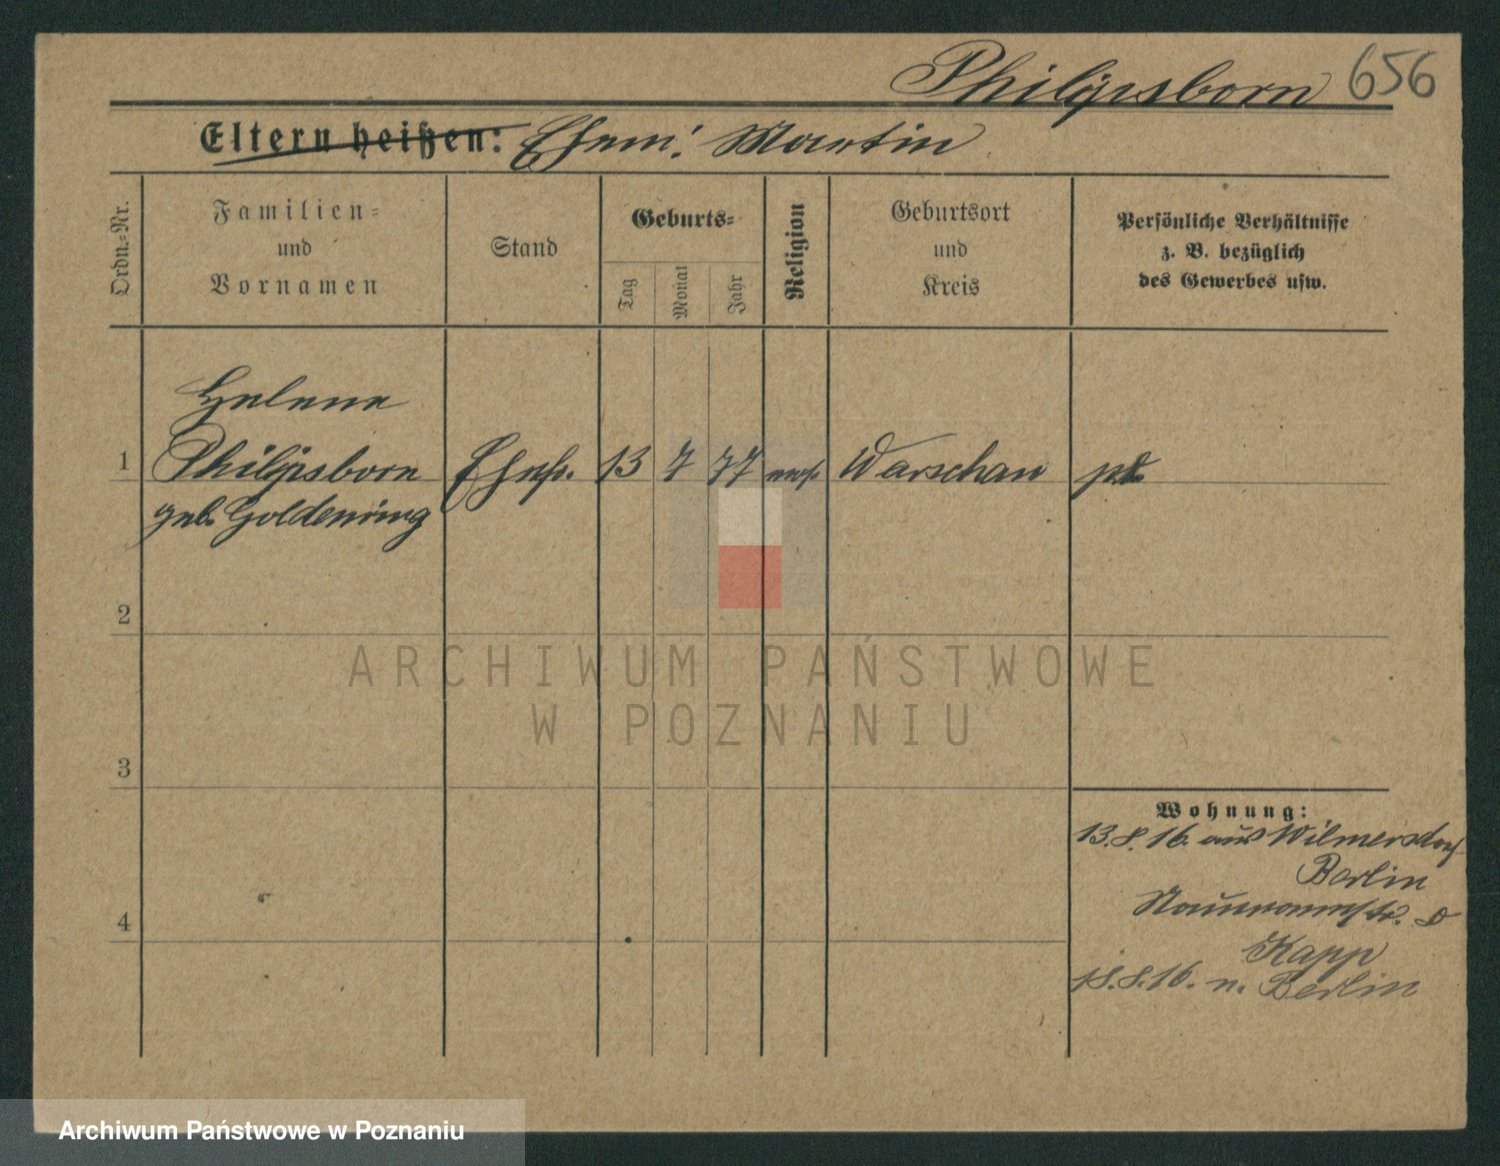 Philipsborn 656
Eltern heißen: Ehem: Martin
Ordn.=Nr.
Familien=
und
Vornamen
Stand
Geburts=
Tag
Monat
Jahr
Religion
Geburtsort
und
Kreis
Persönliche Verhältnisse
z. B. bezüglich
des Gewerbes usw.
Helene
1 Philipsborn 13 7 77 mos. Warschau
geb. Goldenring
2
ARCHIWUM PAŃSTWOWE
W POZNANIU
3
Wohnung:
13.8.16. aus Wilmersdorf
Berlin
4 Naumannstr.
Kapp
18.8.16. n. Berlin
Archiwum Państwowe w Poznaniu